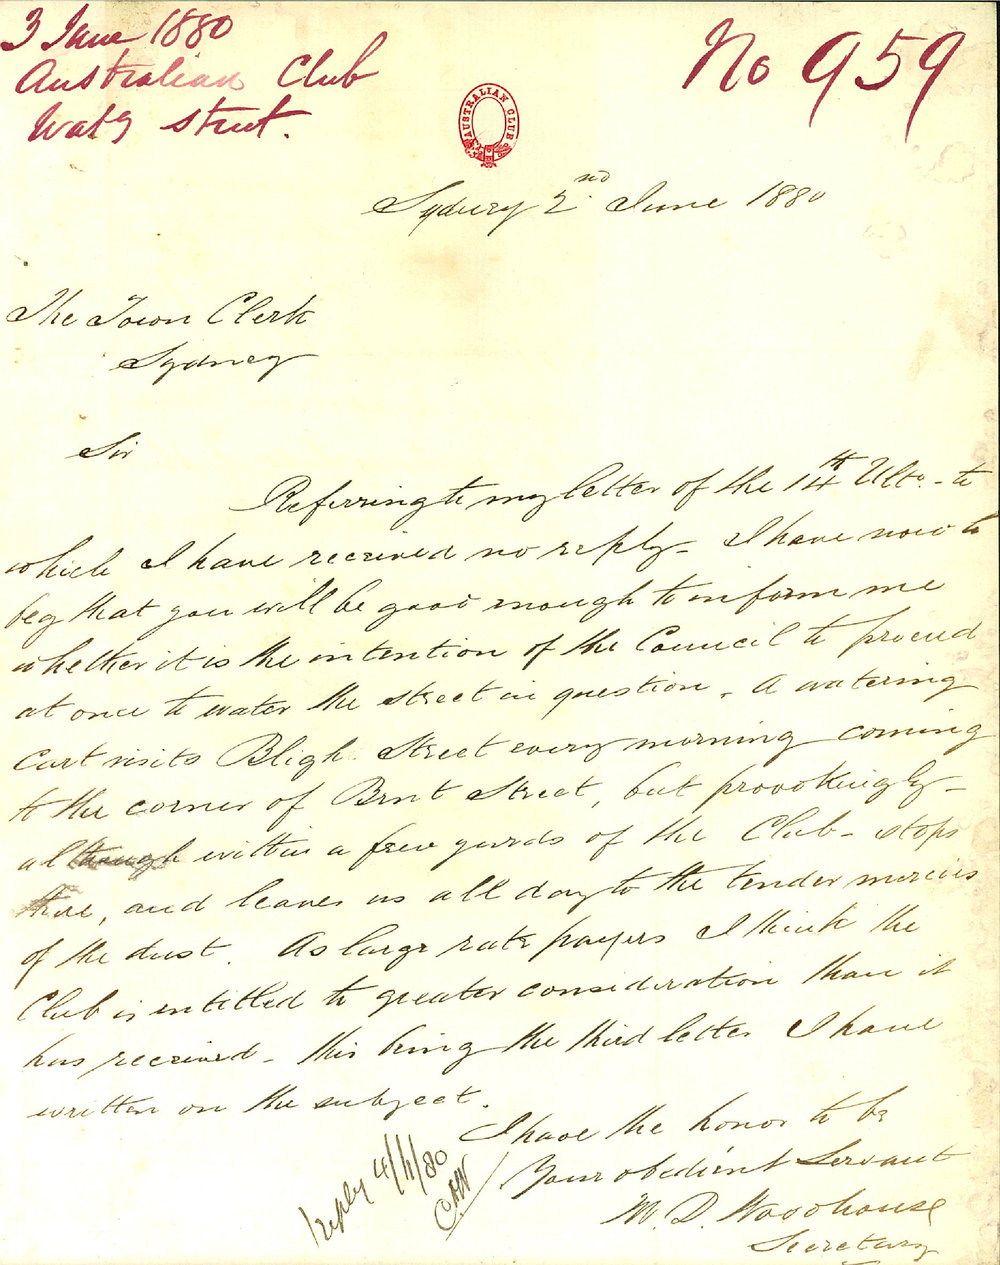 3 June 1880
Australian Club
Watg street.
No 959
AUSTRALIAN CLUB
Sydney 2nd June 1880
The Town Clerk
Sydney
Sir
Referring to my letter of the 14th Ulto. - to
which I have received no reply - I have now to
beg that you will be good enough to inform me
whether it is the intention of the Council to proceed
at once to water the street in question. A watering
Cart visits Bligh Street every morning coming
to the corner of Bent Street, but provokingly -
although within a few yards of the Club - stops
there, and leaves us all day to the tender mercies
of the dust. As large rate payers I think the
Club is entitled to greater consideration than it
has received - this being the third letter I have
written on the subject.
I have the honor to be
Your obedient Servant
M. D. Woodhouse
Secretary
reply 4/6/80